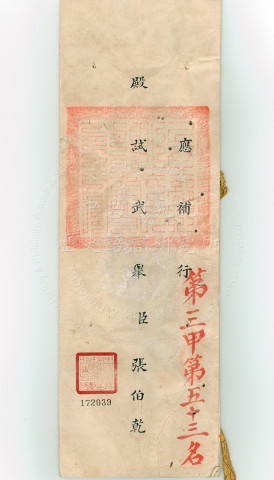 第三甲第五十三名
應補行
殿試武舉臣張伯乾
172039